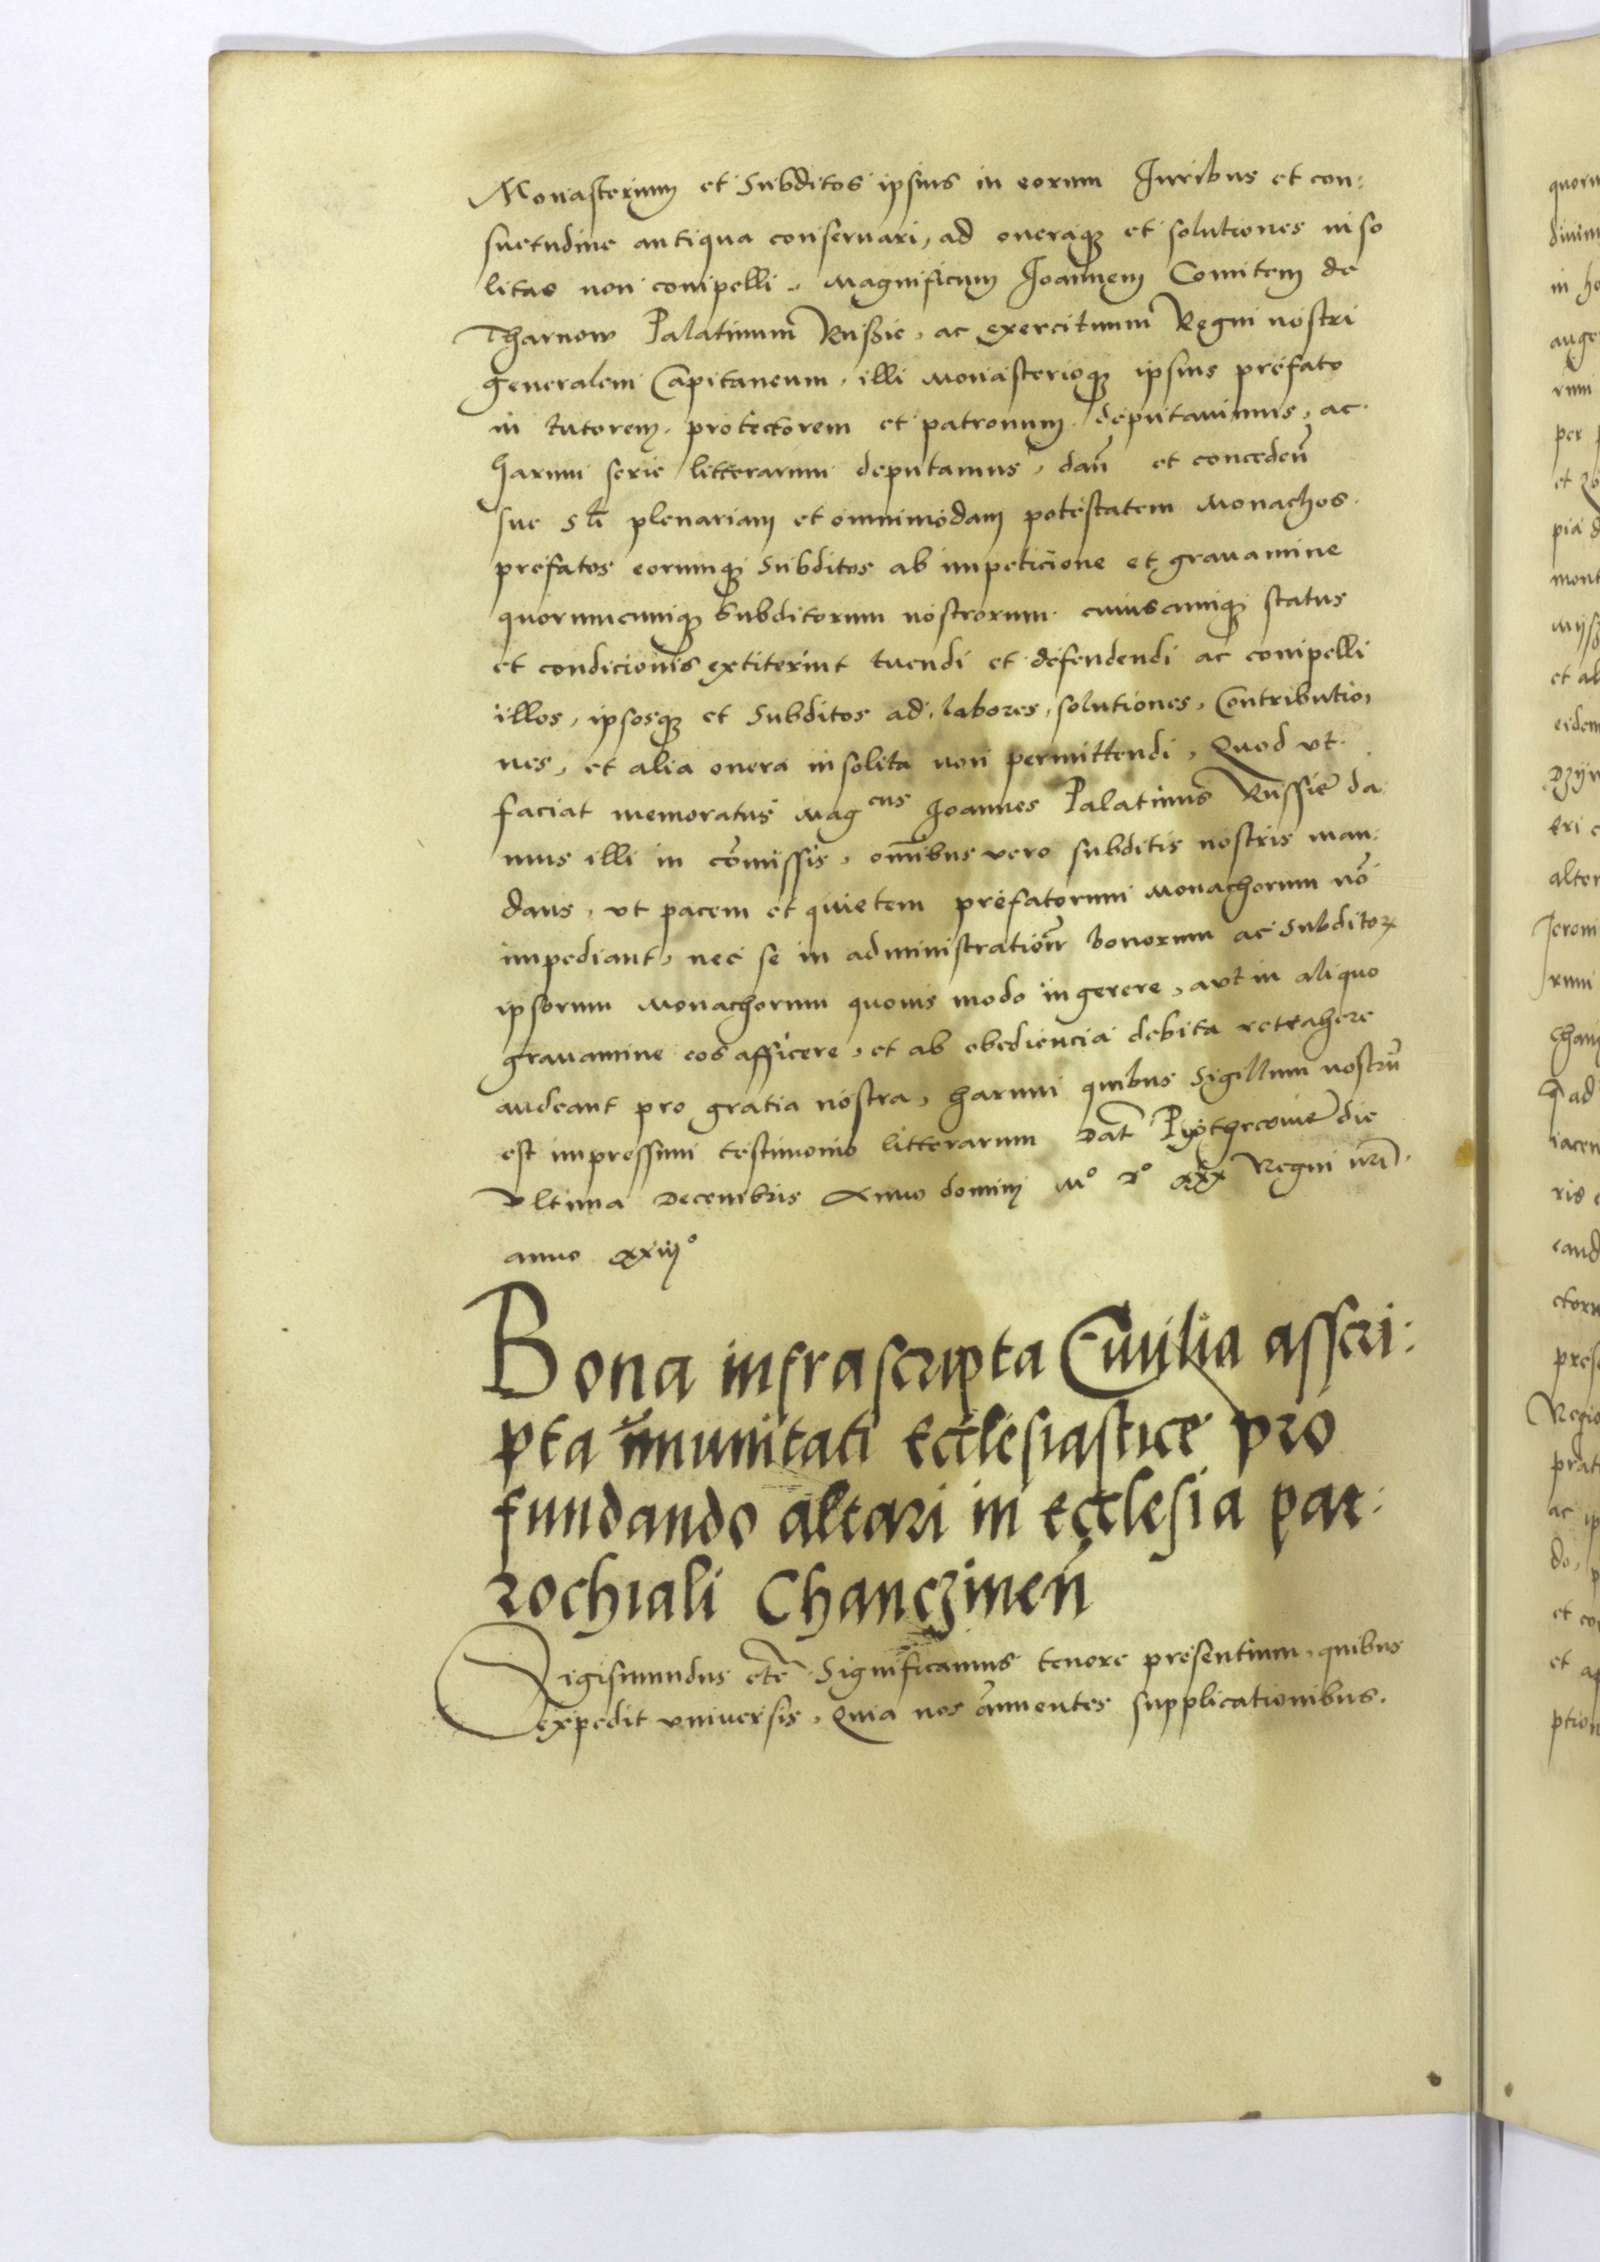 Monasterium et Subditos ipsius in eorum Juribus et con:
suetudine antiqua conservari, ad oneraq₃ et solutiones inso
litas non compelli, Magnificum Joannem Comitem de
Tharnow Palatinum Rußie, ac exercituum Regni nostri
generalem Capitaneum, illi Monasterioq₃ ipsius prefato
in tutorem, protectorem et patronum deputavimus, ac
harum serie litterarum deputamus, dan̄ et conceden̄
sue Sti plenariam et omnimodam potestatem Monachos
prefatos eorumq₃ Subditos ab impeticione et gravamine
quorumcumq₃ Subditorum nostrorum cuiuscumq₃ status
et condicionis extiterint tuendi et defendendi ac compelli
illos, ipsosq₃ et Subditos ad labores, solutiones, Contributio,
nes, et alia onera insolita non permittendi, Quod vt
faciat memoratus Mag<sup>cus</sup> Joannes Palatinus Russie da
mus illi in com̄issis, omībus vero subditis nostris man:
dans, vt pacem et quietem prefatorum Monachorum nō
impediant, nec se in administration̄ bonorum ac Subditoꝝ
ipsorum Monachorum quovis modo ingerere, aut in aliquo
gravamine eos afficere, et ab obediencia debita retrahere
audeant pro gratia nostra, harum quibus Sigillum nostrū
est impressum testimonio litterarum Dat̄ Pyothrcovie die
Vltima Decembris Anno domini Mº Dº XXX Regni nr̄i
anno XXIIIJº
Bona infrascripta Civilia asscri:
pta īmunitati Ecclesiastice pro
fundando altari in Ecclesia par:
rochiali Chanczinen̄
Sigismundus etc̄ Significamus tenore presentium, quibus
expedit vniversis, Quia nos annuentes supplicationibus.